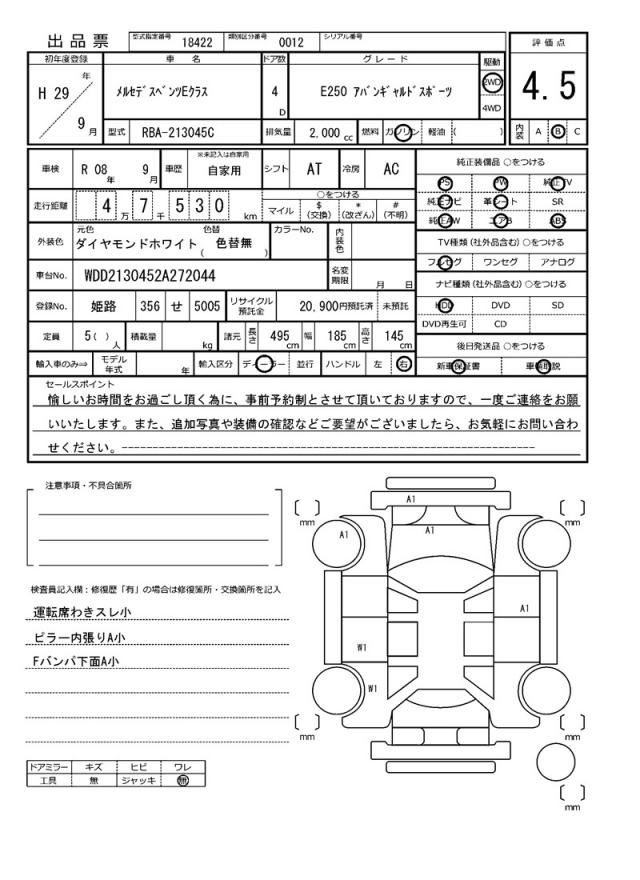 出品票 型式指定番号 18422 類別区分番号 0012 シリアル番号
評価点
4.5
内装 A B C
初年度登録 車名 ドア数 グレード 駆動
H 29年 9月 メルセデスベンツEクラス 4D E250 アバンギャルドスポーツ 2WD 4WD
型式 RBA-213045C 排気量 2,000cc 燃料 ガソリン 軽油 ( )
車検 R 08年 9月 車歴 ※未記入は自家用 自家用 シフト AT 冷房 AC
走行距離 4万7千530km ○をつける マイル $(交換) *(改ざん) #(不明)
外装色 元色 ダイヤモンドホワイト 色替 (色替無) カラーNo. 内装色
車台No. WDD2130452A272044 名変期限 月 日
登録No. 姫路 356 せ 5005 リサイクル預託金 20,900円預託済 未預託
定員 5( )人 積載量 kg 諸元 長さ 495cm 幅 185cm 高さ 145cm
輸入車のみ⇒ モデル年式 年 輸入区分 ディーラー 並行 ハンドル 左 右
純正装備品 ○をつける
PS PW 純正TV
純正ナビ 革シート SR
純正AW エアB ABS
TV種類(社外品含む)○をつける
フルセグ ワンセグ アナログ
ナビ種類(社外品含む)○をつける
HDD DVD SD
DVD再生可 CD
後日発送品 ○をつける
新車保証書 車輌取説
セールスポイント
愉しいお時間をお過ごし頂く為に、事前予約制とさせて頂いておりますので、一度ご連絡をお願
いいたします。また、追加写真や装備の確認などご要望がございましたら、お気軽にお問い合わ
せください。
注意事項・不具合箇所
検査員記入欄：修復歴「有」の場合は修復箇所・交換箇所を記入
運転席わきスレ小
ピラー内張りA小
Fバンパ下面A小
ドアミラー キズ ヒビ ワレ
工具 無 ジャッキ 無
A1
A1
A1
A1
W1
W1
mm
mm
mm
mm
mm